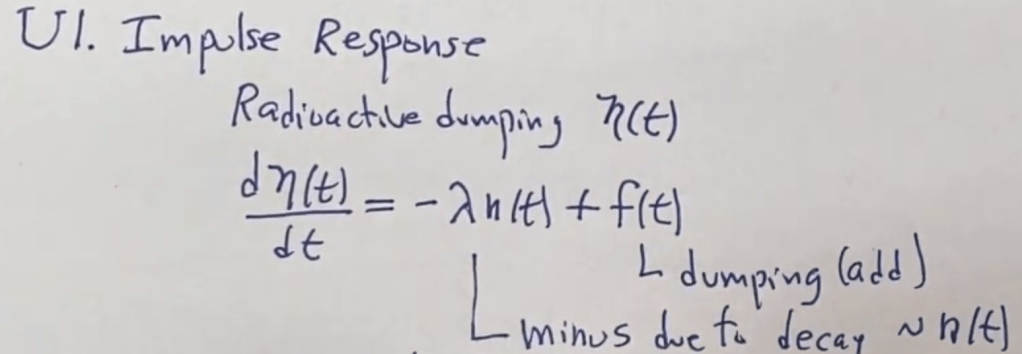 U1. Impulse Response
Radioactive dumping η(t)
dη(t)/dt = -λη(t) + f(t)
dumping (add)
minus due to decay ~ η(t)